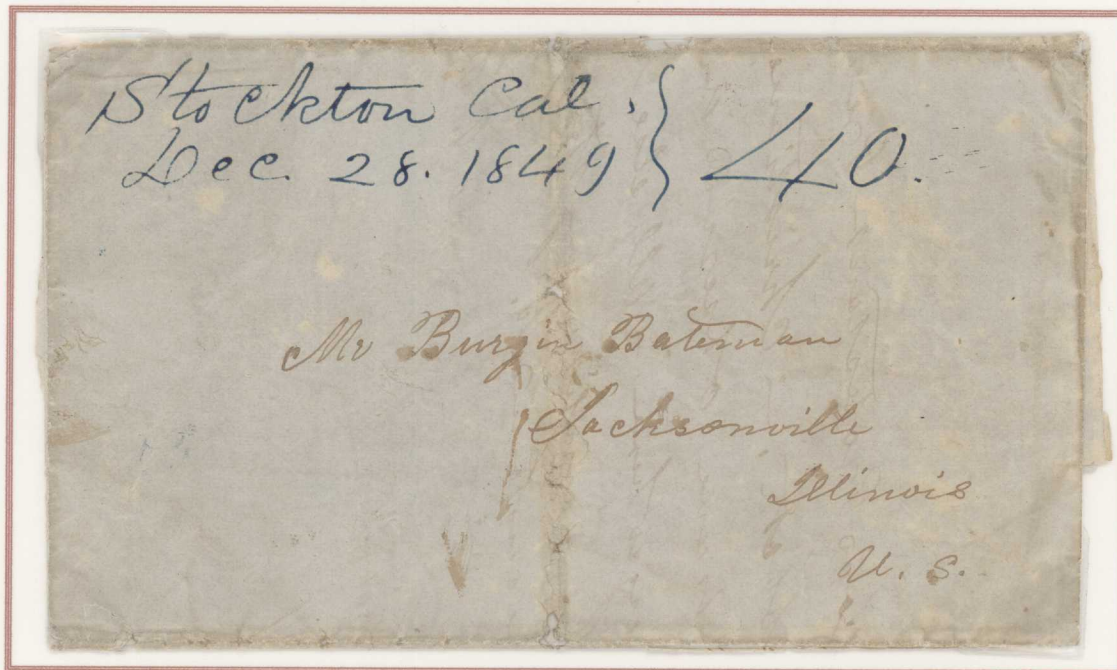 Stockton Cal. } 40.
Dec. 28. 1849
Mr Burgin Bateman
Jacksonville
Illinois
U. S.